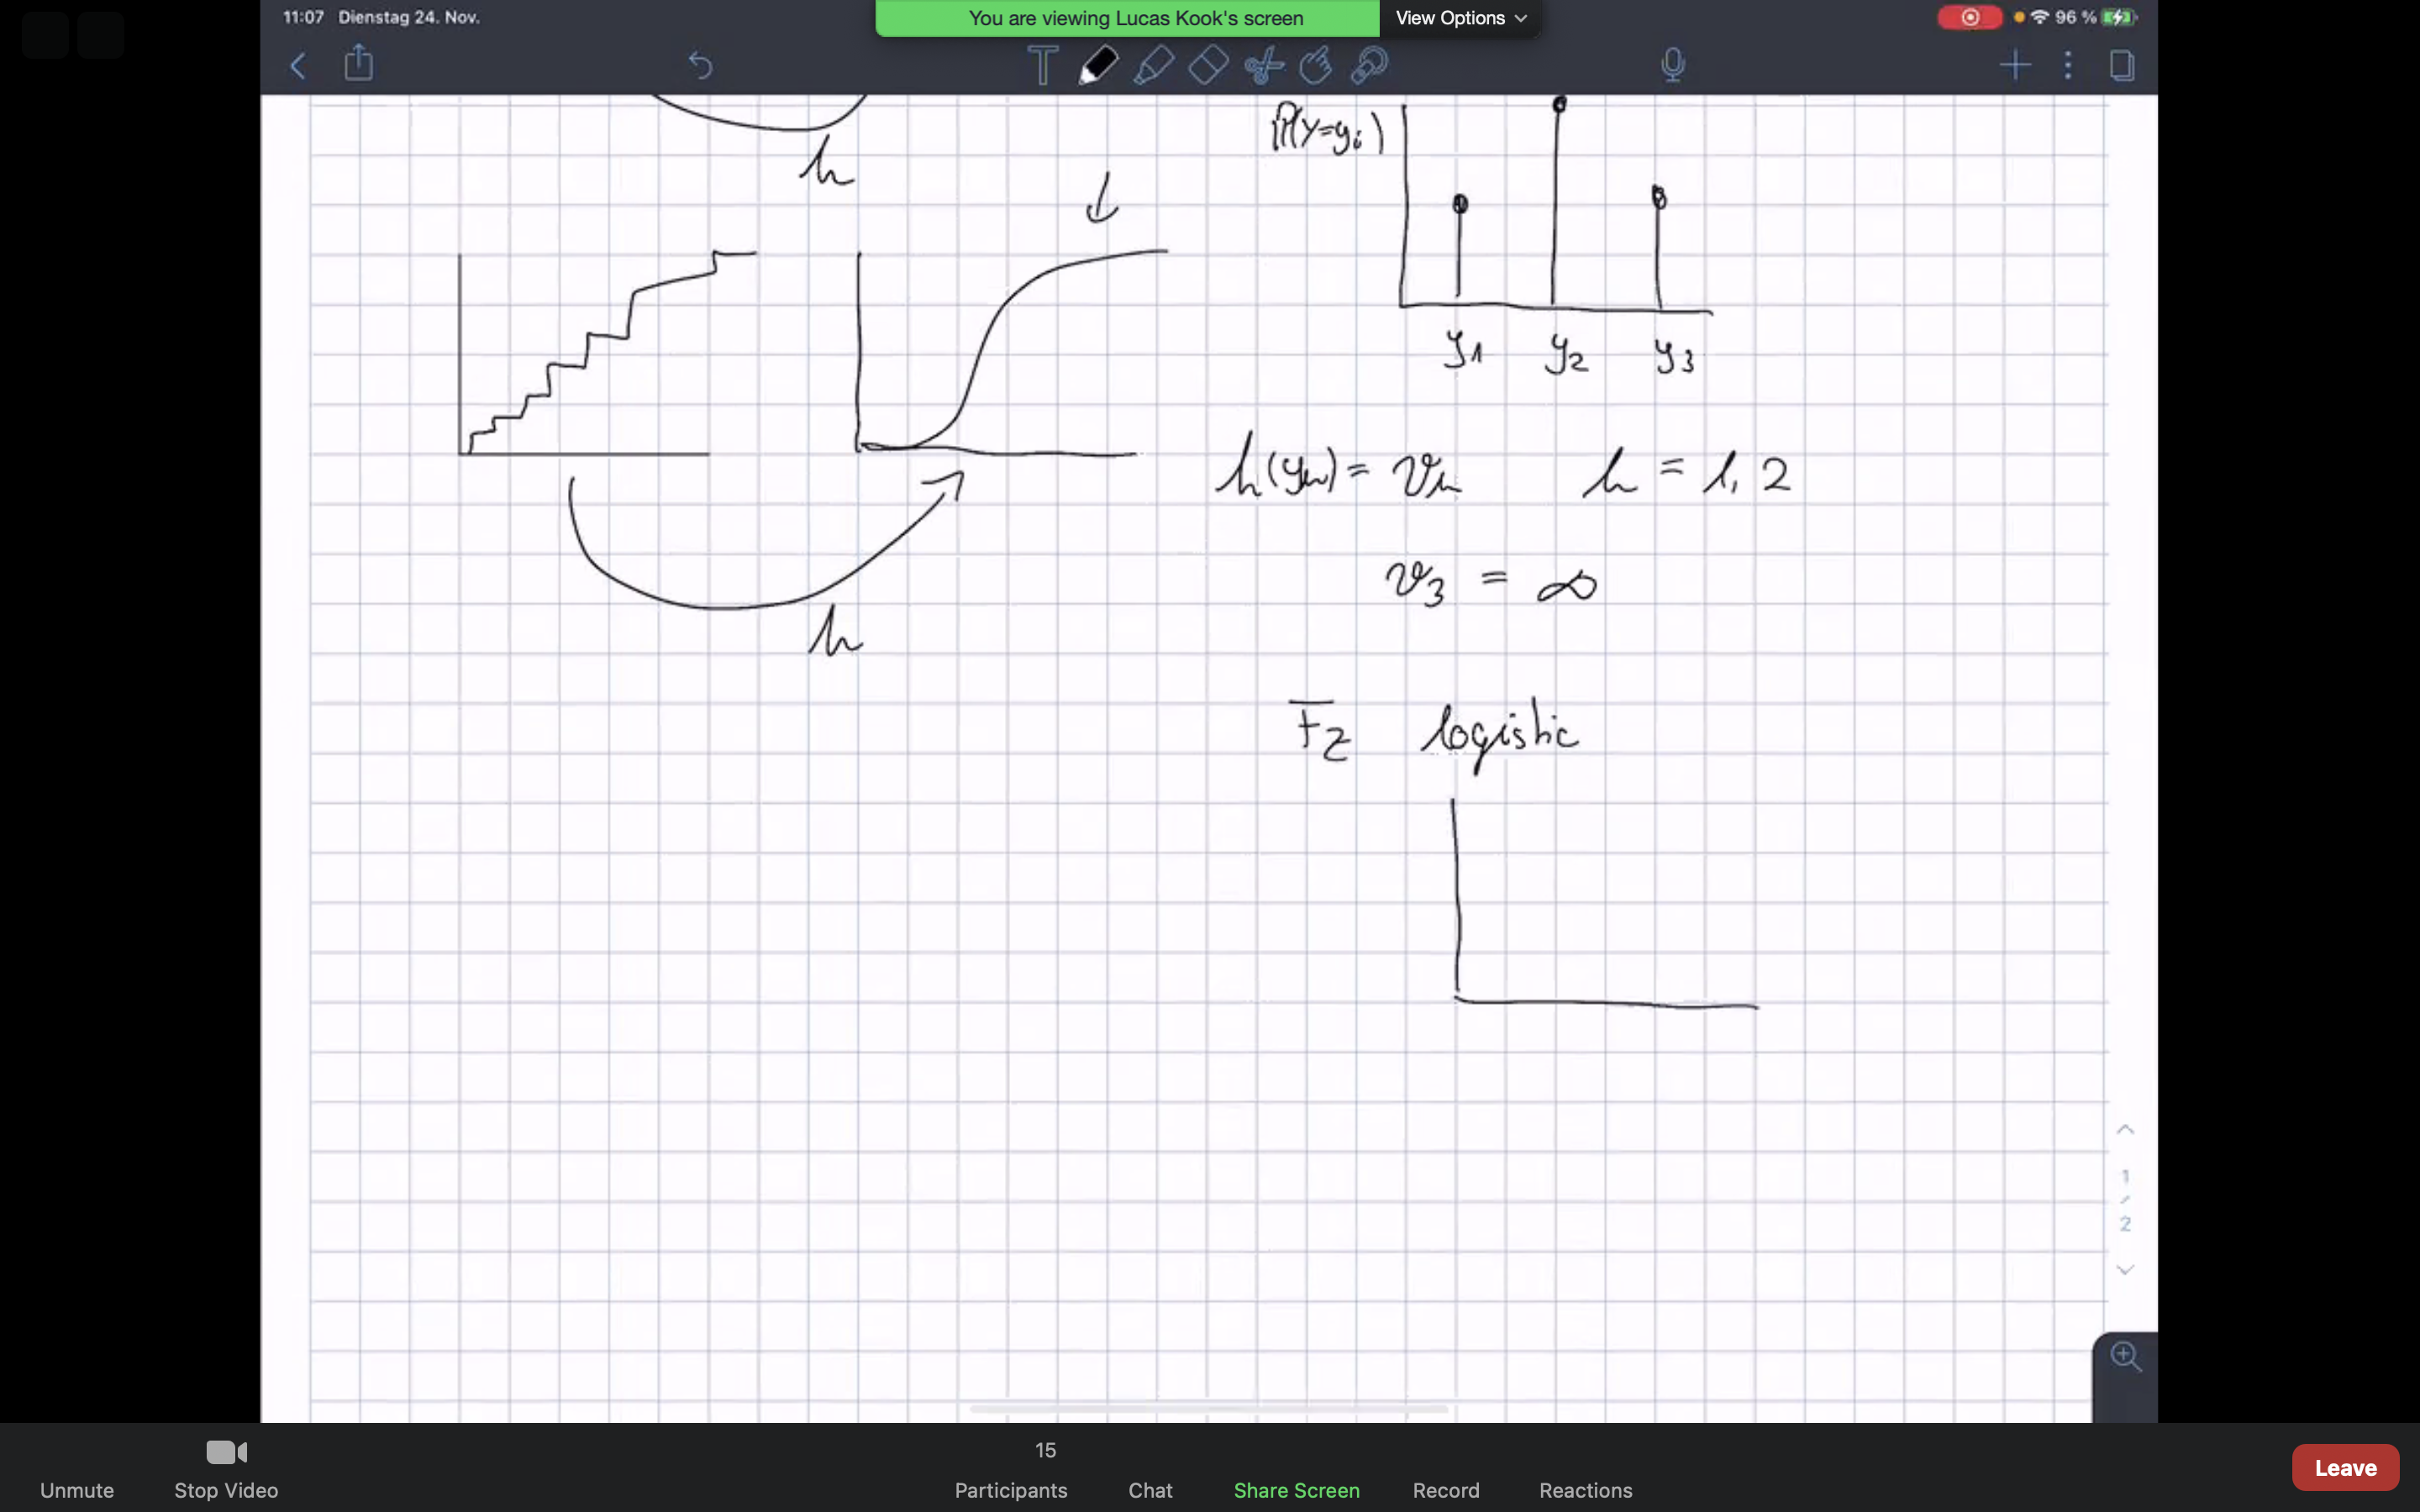 11:07 Dienstag 24. Nov.
You are viewing Lucas Kook's screen
View Options
96 %
P(Y=yi)
h
y1 y2 y3
h(yk) = ϑk k = 1, 2
ϑ3 = ∞
h
Fz logistic
1
/
2
15
Unmute
Stop Video
Participants
Chat
Share Screen
Record
Reactions
Leave